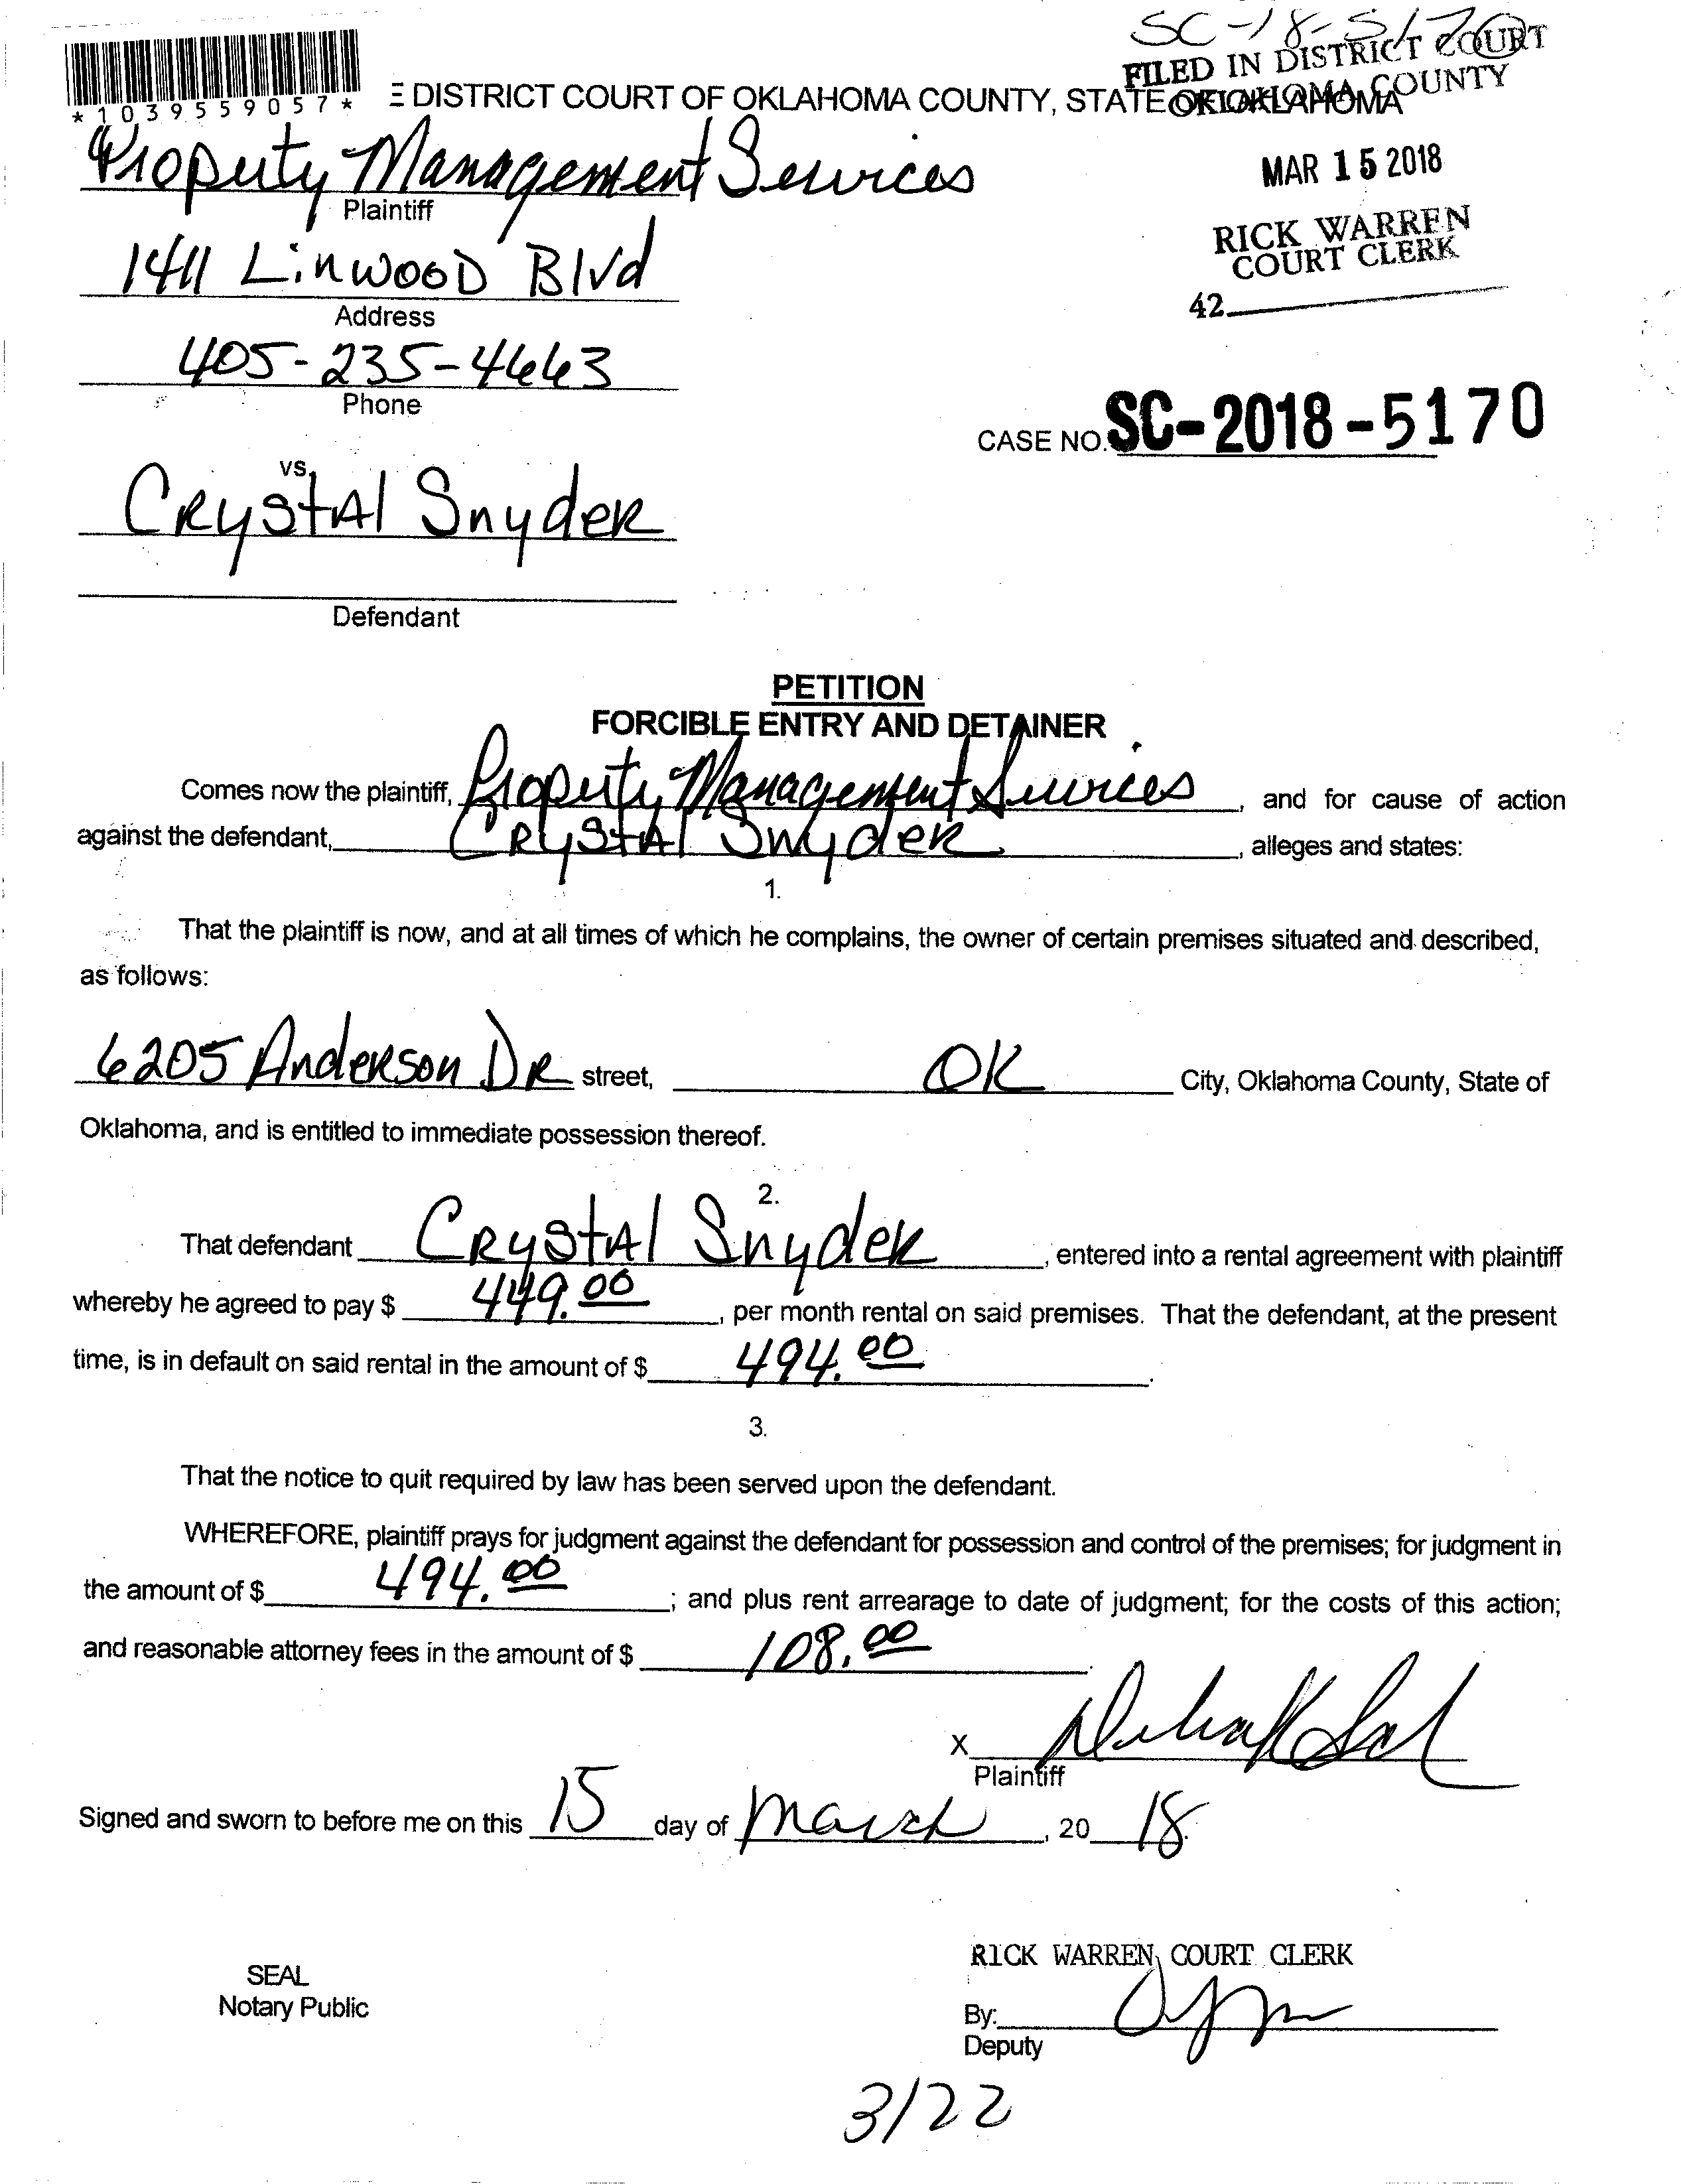 SC-18-5170
FILED IN DISTRICT COURT
OKLAHOMA COUNTY
*1039559057*
E DISTRICT COURT OF OKLAHOMA COUNTY, STATE OF OKLAHOMA
MAR 15 2018
RICK WARREN
COURT CLERK
42
Property Management Services
Plaintiff
1411 Linwood Blvd
Address
405-235-4663
Phone
CASE NO. SC-2018-5170
vs.
Crystal Snyder
Defendant
PETITION
FORCIBLE ENTRY AND DETAINER
Comes now the plaintiff, Property Management Services, and for cause of action
against the defendant, Crystal Snyder, alleges and states:
1.
That the plaintiff is now, and at all times of which he complains, the owner of certain premises situated and described,
as follows:
6205 Anderson DR street, OK City, Oklahoma County, State of
Oklahoma, and is entitled to immediate possession thereof.
2.
That defendant Crystal Snyder, entered into a rental agreement with plaintiff
whereby he agreed to pay $ 449.00, per month rental on said premises. That the defendant, at the present
time, is in default on said rental in the amount of $ 494.00.
3.
That the notice to quit required by law has been served upon the defendant.
WHEREFORE, plaintiff prays for judgment against the defendant for possession and control of the premises; for judgment in
the amount of $ 494.00; and plus rent arrearage to date of judgment; for the costs of this action;
and reasonable attorney fees in the amount of $ 108.00.
X
Plaintiff
Signed and sworn to before me on this 15 day of March, 20 18.
RICK WARREN, COURT CLERK
SEAL
Notary Public
By:
Deputy
3/22